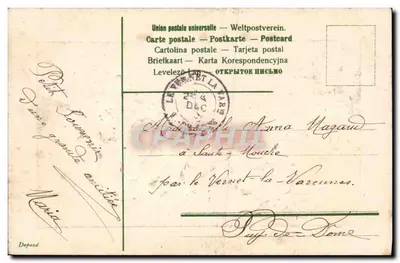 Union postale universelle — Weltpostverein.
Carte postale — Postkarte — Postcard
Cartolina postale — Tarjeta postal
Briefkaart — Karta Korespondencyjna
Levelező-Lap — ОТКРЫТОЕ ПИСЬМО
LE VERNET LA VARENNE
4
DEC
Petit Souvenir
d'une grande amitiée
Maria
Anna Nagaud
à Saute-Mouche
par le Vernet-la-Varennes
Puy-de-Dôme
Deposé
CPAPHIL